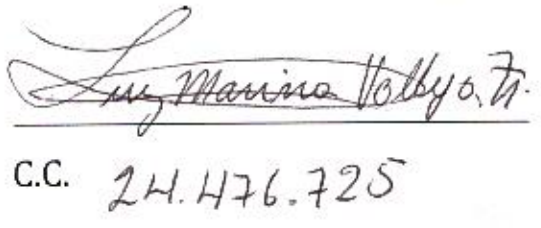 Luz Marina Vallejo. Fr.
C.C. 24.476.725